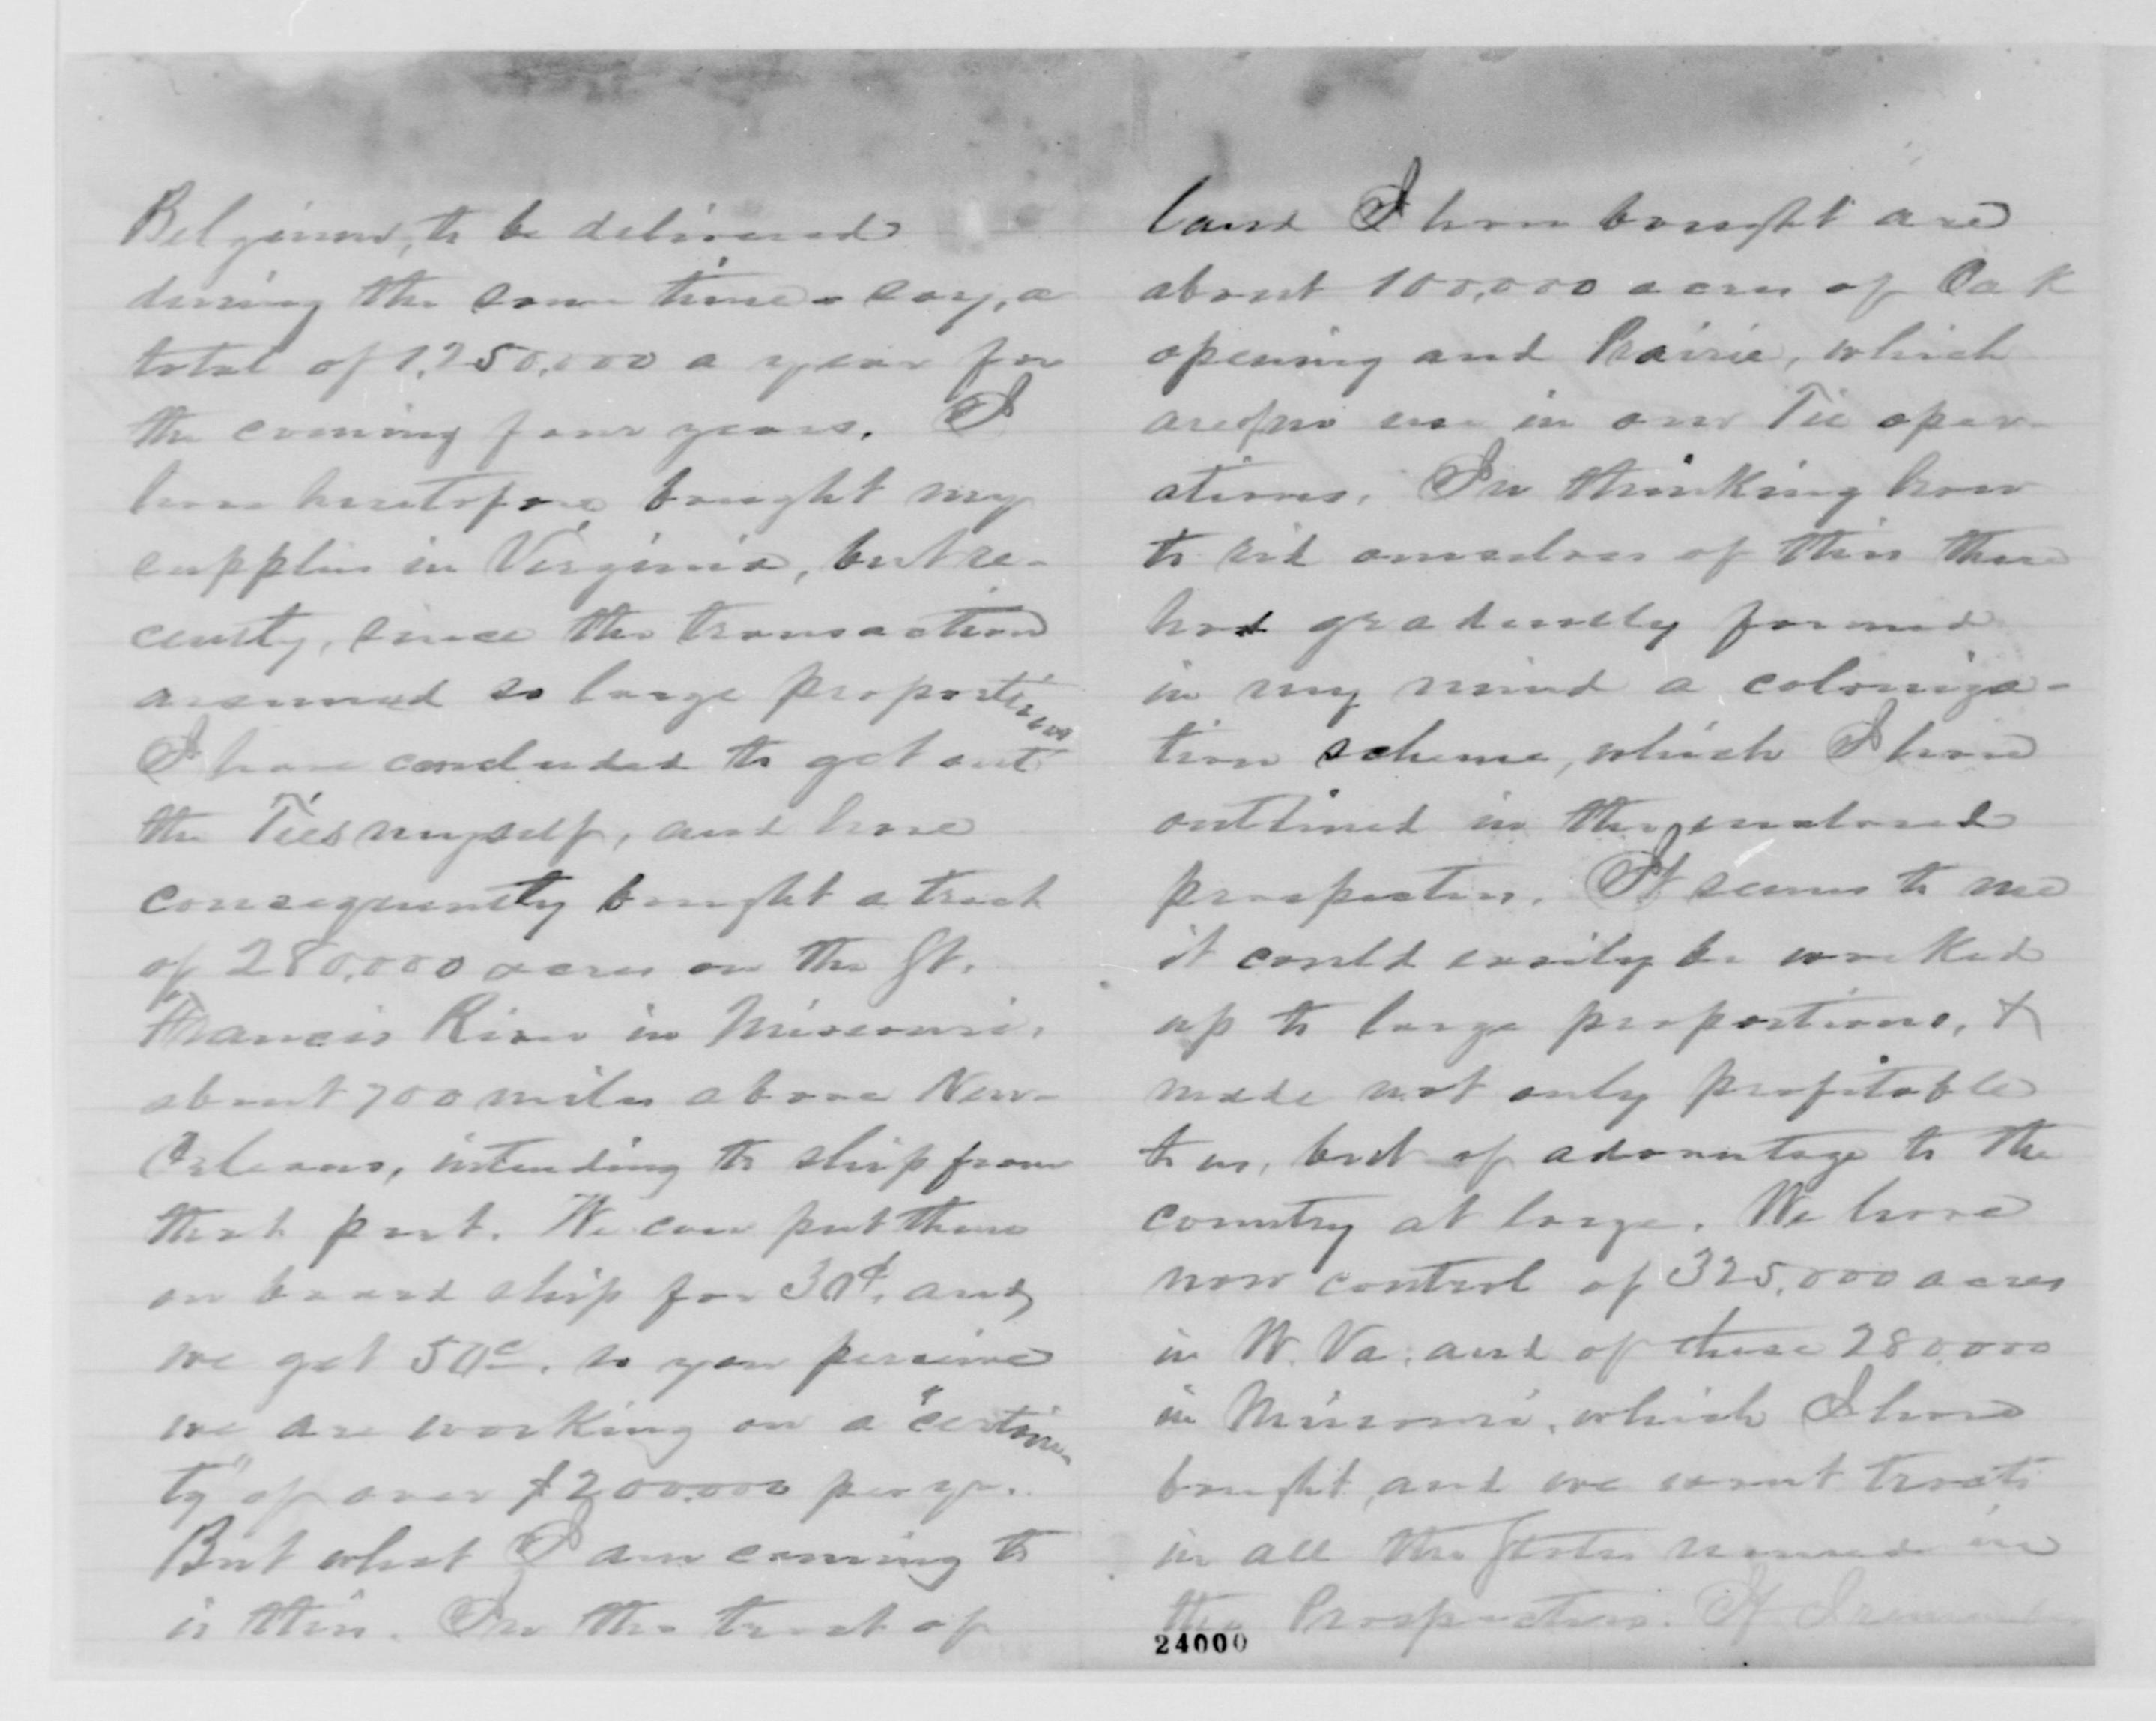 Belgium, to be delivered
during the same time - say, a
total of 1,250,000 a year for
the coming four years. I
have heretofore bought my
supplies in Virginia, but re-
cently, since the transaction
assumed so large proportions
I have concluded to get out
the Ties myself, and have
consequently bought a tract
of 280,000 acres on the St.
Francis River in Missouri,
about 700 miles above New-
Orleans, intending to ship from
that port. We can put them
on board ship for 30¢, and
we get 50c. so you perceive
we are working on a "certain-
ty" of over $200.000 per yr.
But what I am coming to
is this. In the tract of
land I have bought are
about 100,000 acres of Oak
opening and Prairie, which
are of no use in our Tie oper-
ations. In thinking how
to rid ourselves of this there
had gradually formed
in my mind a coloniza-
tion scheme, which I have
outlined in the enclosed
prospectus. It seems to me
it could easily be worked
up to large proportions, &
made not only profitable
to us, but of advantage to the
country at large. We have
now control of 325,000 acres
in W. Va. and of these 280,000
in Missouri, which I have
bought, and we want tracts
in all the States named in
the Prospectus. If I
24000